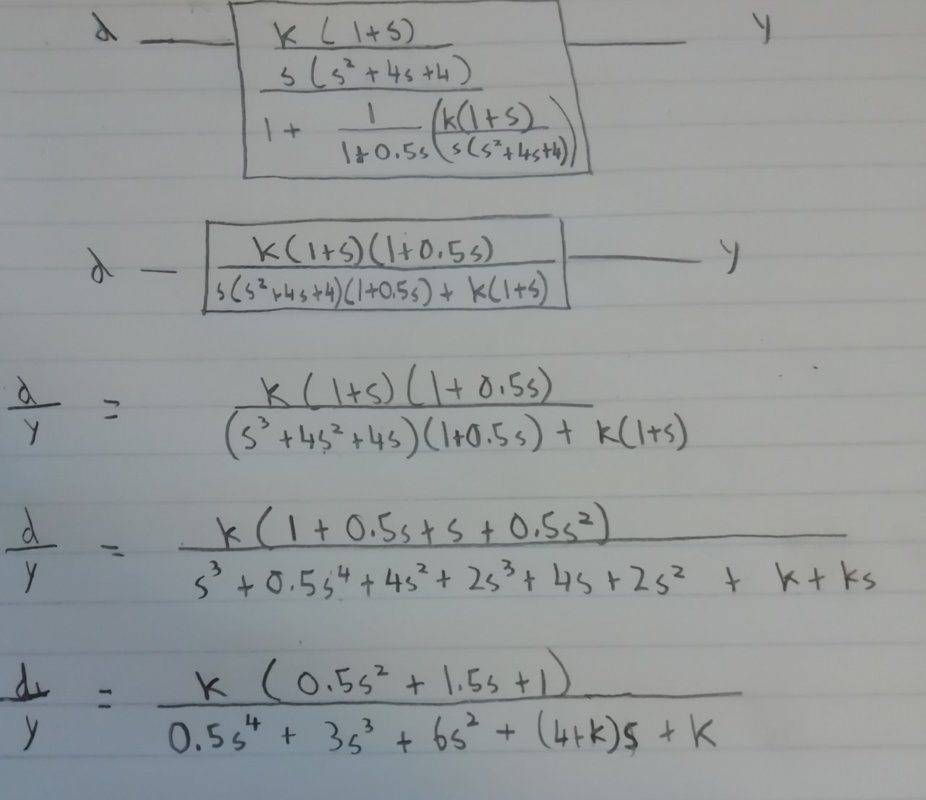 d k(1+s) y
s(s²+4s+4)
1+ 1/(1+0.5s) (k(1+s)/s(s²+4s+4))
d k(1+s)(1+0.5s) y
s(s²+4s+4)(1+0.5s) + k(1+s)
d/y = k(1+s)(1+0.5s)
(s³+4s²+4s)(1+0.5s) + k(1+s)
d/y = k(1+0.5s+s+0.5s²)
s³+0.5s⁴+4s²+2s³+4s+2s² + k+ks
d/y = k(0.5s²+1.5s+1)
0.5s⁴ + 3s³ + 6s² + (4+k)s + k